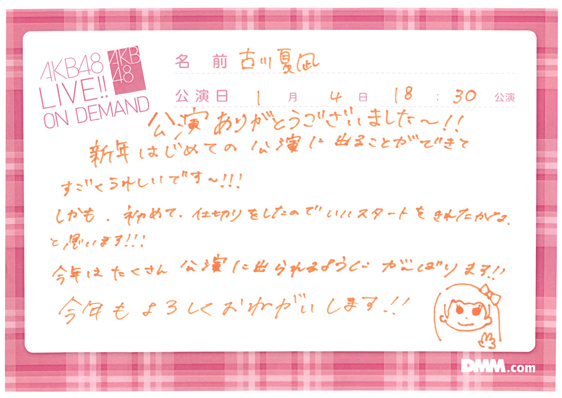 AKB48
LIVE!!
ON DEMAND
AKB
48
名 前 古川夏凪
公演日 1 月 4 日 18 : 30 公演
公演ありがとうございました〜!!
新年はじめての公演に出ることができて
すごくうれしいです〜!!!
しかも、初めて、仕切りをしたのでいいスタートをきれたかな、
と思います!!!
今年はたくさん公演に出られるようにがんばります!!
今年もよろしくおねがいします!!
DMM.com